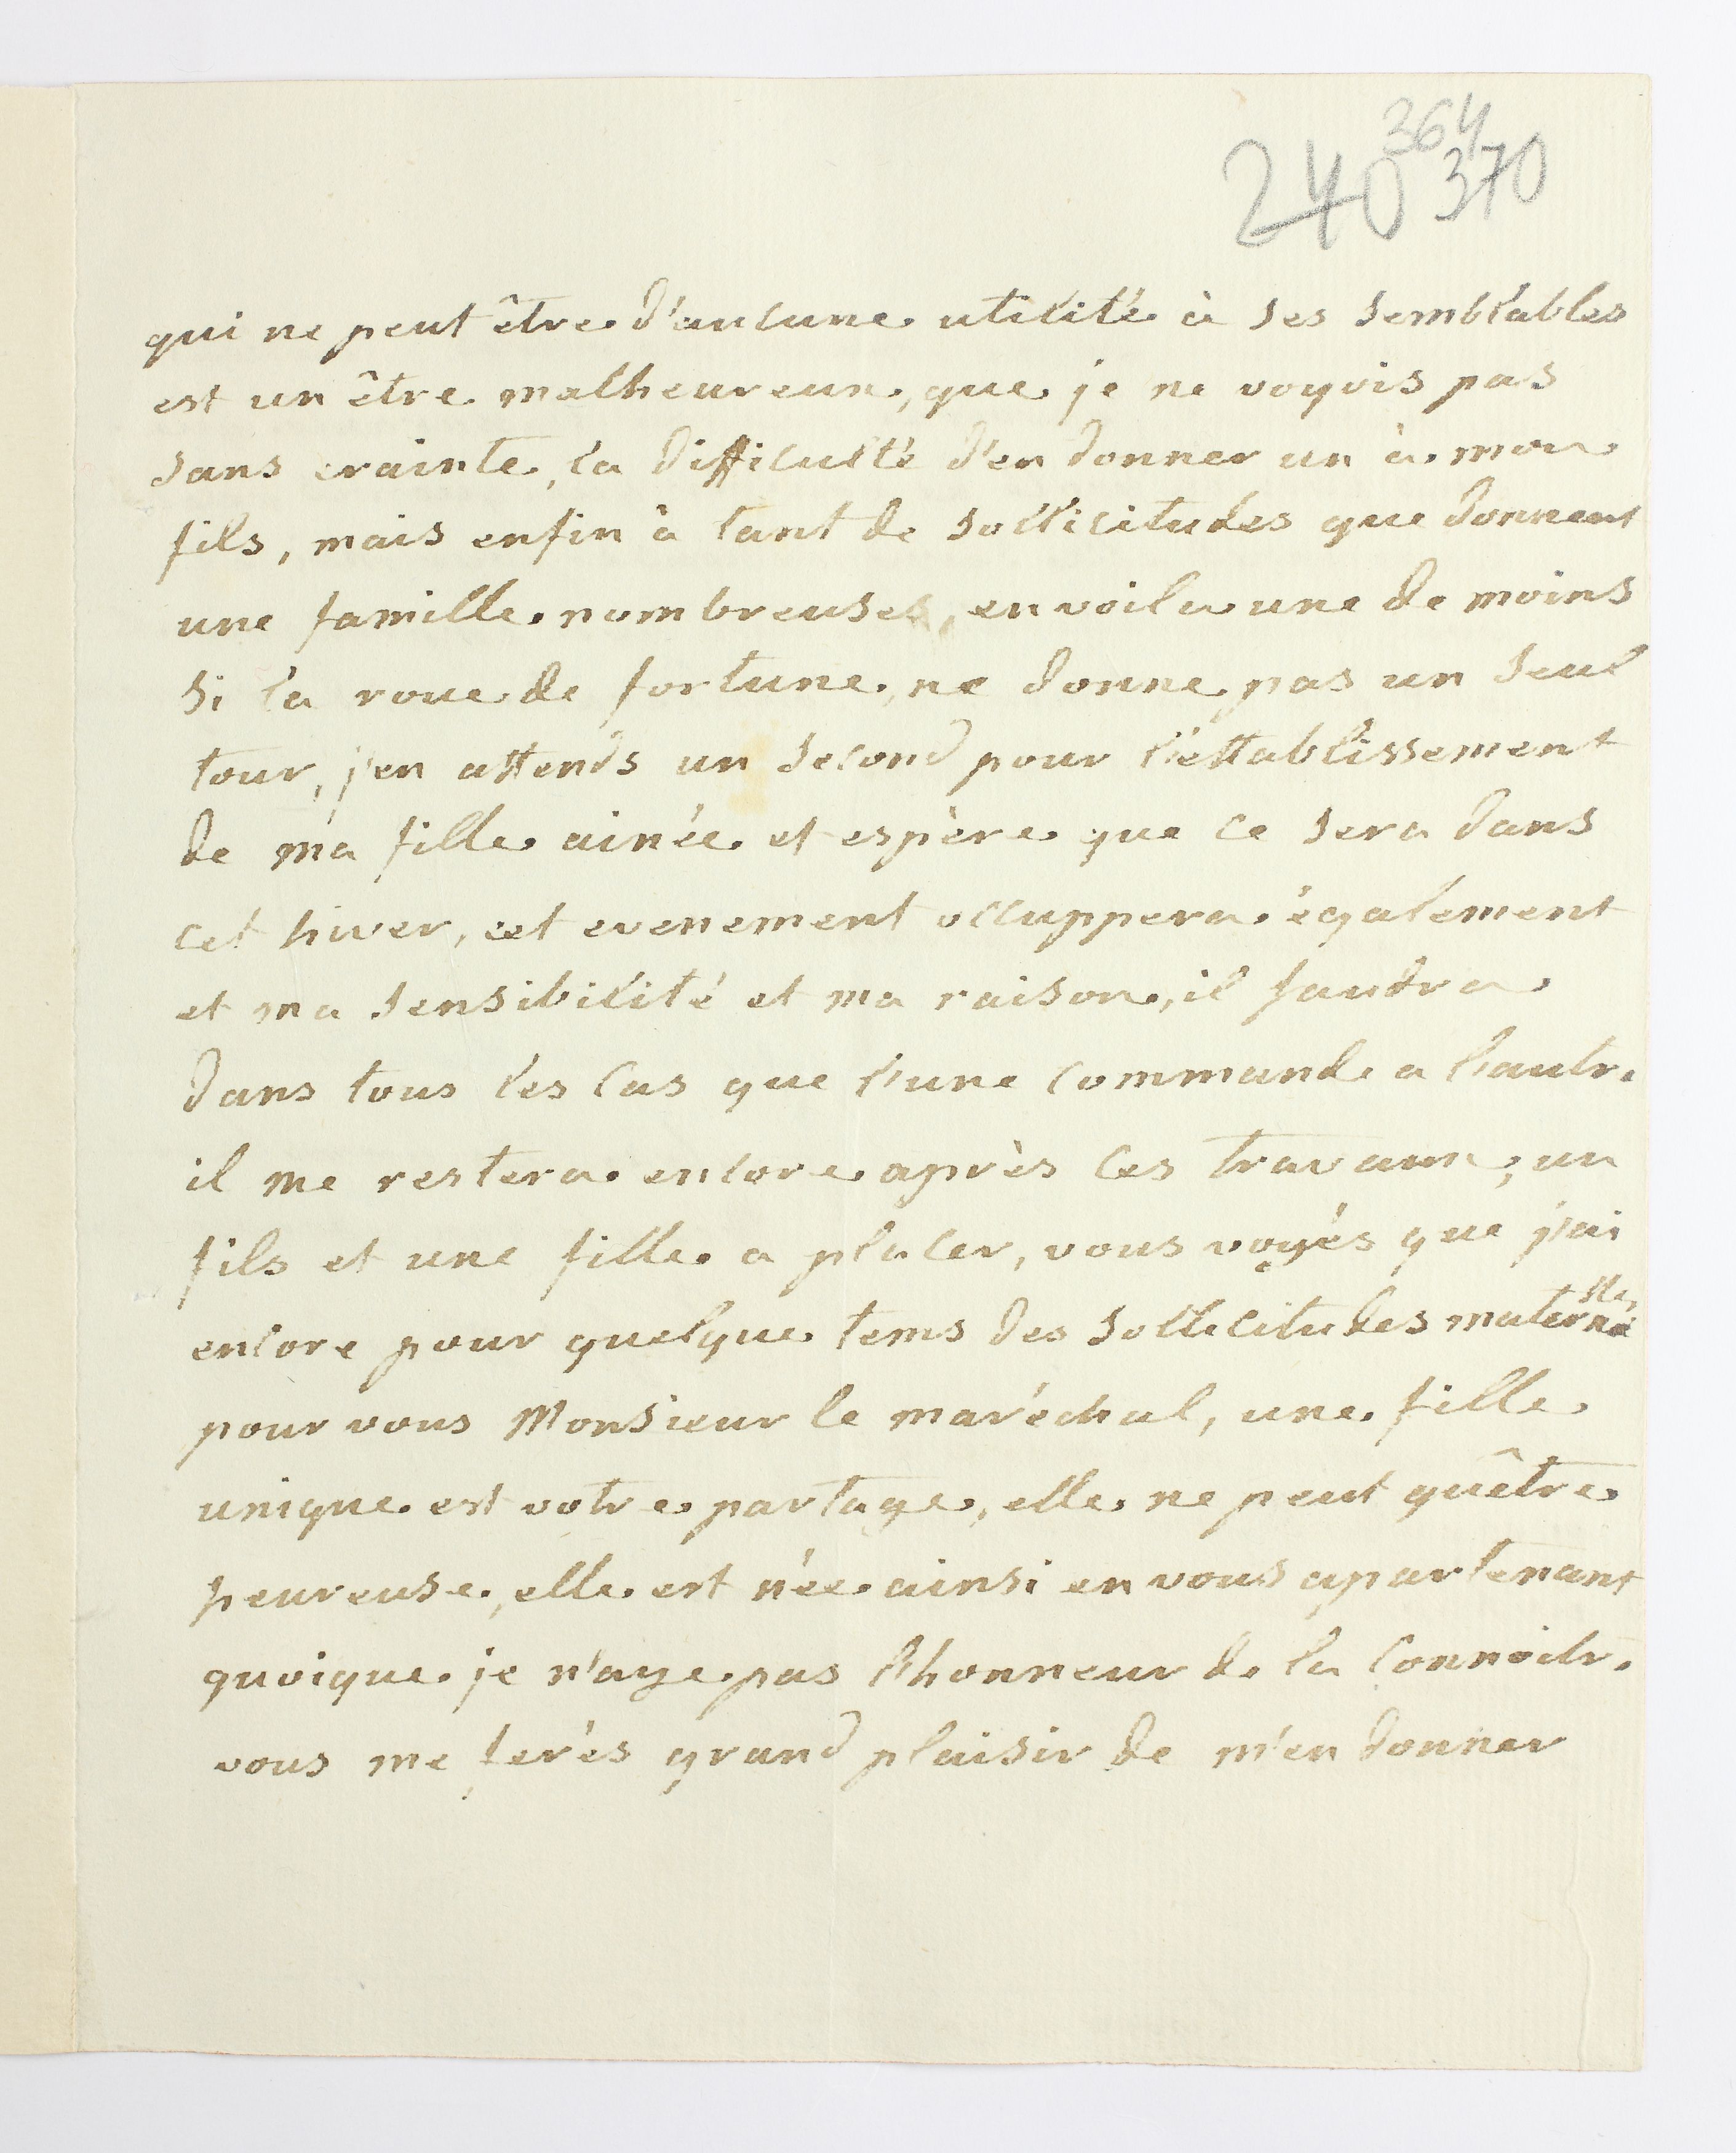 364
240 370
qui ne peut être d'aucune utilité à ses semblables
est un être malheureux, que je ne voyois pas
sans crainte, la difficulté d'en donner un à mon
fils, mais enfin à tant de sollicitudes que donnent
une famille nombreuses, en voila une de moins
si la roue de fortune, ne donne pas un seul
tour, j'en attends un second pour l'ettablissement
de ma fille ainée et espère que ce sera dans
cet hiver, cet evenement occuppera également
et ma sensibilité et ma raison, il faudra
dans tous les cas que l'une commande a l'autre
il me restera encore après ces travaux, un
fils et une fille a placer, vous voyés que j'ai
encore pour quelque tems des sollicitudes maternelles
pour vous Monsieur le maréchal, une fille
unique est votre partage, elle ne peut qu'être
heureuse, elle est née ainsi en vous apartenant
quoique je n'aye pas l'honneur de la connoitre
vous me ferés grand plaisir de m'en donner